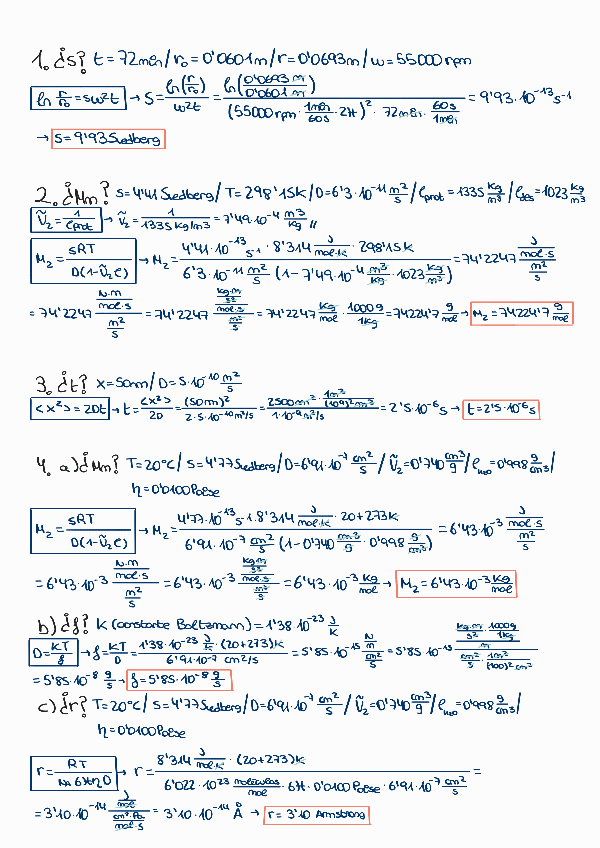 1. ¿s? t = 72min / r₀ = 0'0601m / r = 0'0693m / w = 55000 rpm
ln r/r₀ = sw²t → S = ln(r/r₀)/w²t = ln(0'0693 m/0'0601 m)/((55000 rpm · 1min/60s · 2π)² · 72min · 60s/1min) = 9'93·10⁻¹³ s⁻¹
→ S = 9'93 Svedberg
2. ¿Mm? S = 4'41 Svedberg / T = 298'15K / D = 6'3·10⁻¹¹ m²/s / ρprot = 1335 kg/m³ / ρdes = 1023 kg/m³
Ṽ₂ = 1/ρprot → Ṽ₂ = 1/1335 kg/m³ = 7'49·10⁻⁴ m³/kg //
M₂ = sRT/D(1-Ṽ₂ρ) → M₂ = 4'41·10⁻¹³ s⁻¹ · 8'314 J/mol·K · 298'15K/6'3·10⁻¹¹ m²/s (1-7'49·10⁻⁴ m³/kg · 1023 kg/m³) = 74'2247 J/mol·s/m²/s
= 74'2247 N·m/mol·s/m²/s = 74'2247 kg·m/s²/mol·s/m²/s = 74'2247 kg/mol · 1000g/1kg = 74224'7 g/mol → M₂ = 74224'7 g/mol
3. ¿t? x = 50nm / D = 5·10⁻¹⁰ m²/s
<x²> = 2Dt → t = <x²>/2D = (50nm)²/2·5·10⁻¹⁰ m²/s = 2500 nm² · 1m²/(10⁹)² nm²/1·10⁻⁹ m²/s = 2'5·10⁻⁶ s → t = 2'5·10⁻⁶ s
4. a) ¿Mm? T = 20°C / S = 4'77 Svedberg / D = 6'91·10⁻⁷ cm²/s / Ṽ₂ = 0'740 cm³/g / ρH₂O = 0'998 g/cm³ /
η = 0'0100 Poise
M₂ = sRT/D(1-Ṽ₂ρ) → M₂ = 4'77·10⁻¹³ s⁻¹ · 8'314 J/mol·K · 20+273K/6'91·10⁻⁷ cm²/s (1-0'740 cm³/g · 0'998 g/cm³) = 6'43·10⁻³ J/mol·s/m²/s
= 6'43·10⁻³ N·m/mol·s/m²/s = 6'43·10⁻³ kg·m/s²/mol·s/m²/s = 6'43·10⁻³ kg/mol → M₂ = 6'43·10⁻³ kg/mol
b) ¿f? K (constante Boltzmann) = 1'38·10⁻²³ J/K
D = KT/f → f = KT/D = 1'38·10⁻²³ J/K · (20+273)K/6'91·10⁻⁷ cm²/s = 5'85·10⁻¹⁵ N/m/cm²/s = 5'85·10⁻¹⁵ kg·m/s² · 1000g/1kg/cm²/s · 1m²/(100)² cm²
= 5'85·10⁻⁸ g/s → f = 5'85·10⁻⁸ g/s
c) ¿r? T = 20°C / S = 4'77 Svedberg / D = 6'91·10⁻⁷ cm²/s / Ṽ₂ = 0'740 cm³/g / ρH₂O = 0'998 g/cm³ /
η = 0'0100 Poise
r = RT/NA 6πηD → r = 8'314 J/mol·K · (20+273)K/6'022·10²³ moléculas/mol · 6π · 0'0100 Poise · 6'91·10⁻⁷ cm²/s =
= 3'10·10⁻¹⁴ J/mol/cm²·Pa/mol·s = 3'10·10⁻¹⁴ Å → r = 3'10 Armstrong